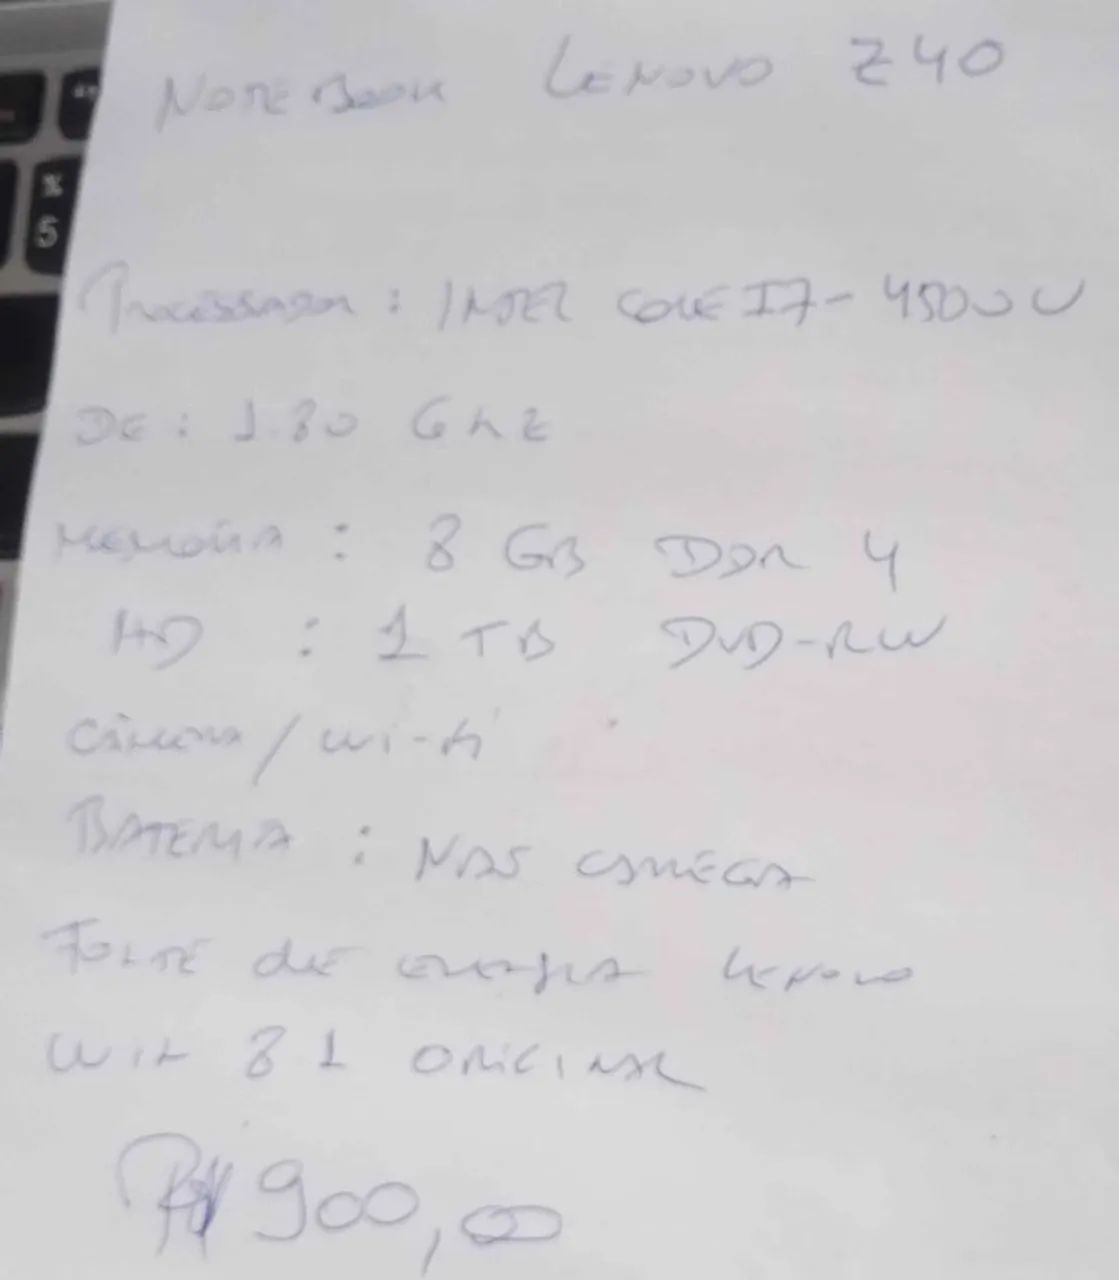 NOTEBOOK LENOVO Z40
% 5
Processador: INTEL CORE I7-4500U
DE: 1.80 GhZ
Memória: 8 GB DDR 4
HD : 1 TB DVD-RW
Câmera/Wi-fi
BATERIA: NÃO CARREGA
FONTE de energia Lenovo
WIN 8 1 ORIGINAL
R$ 900,00